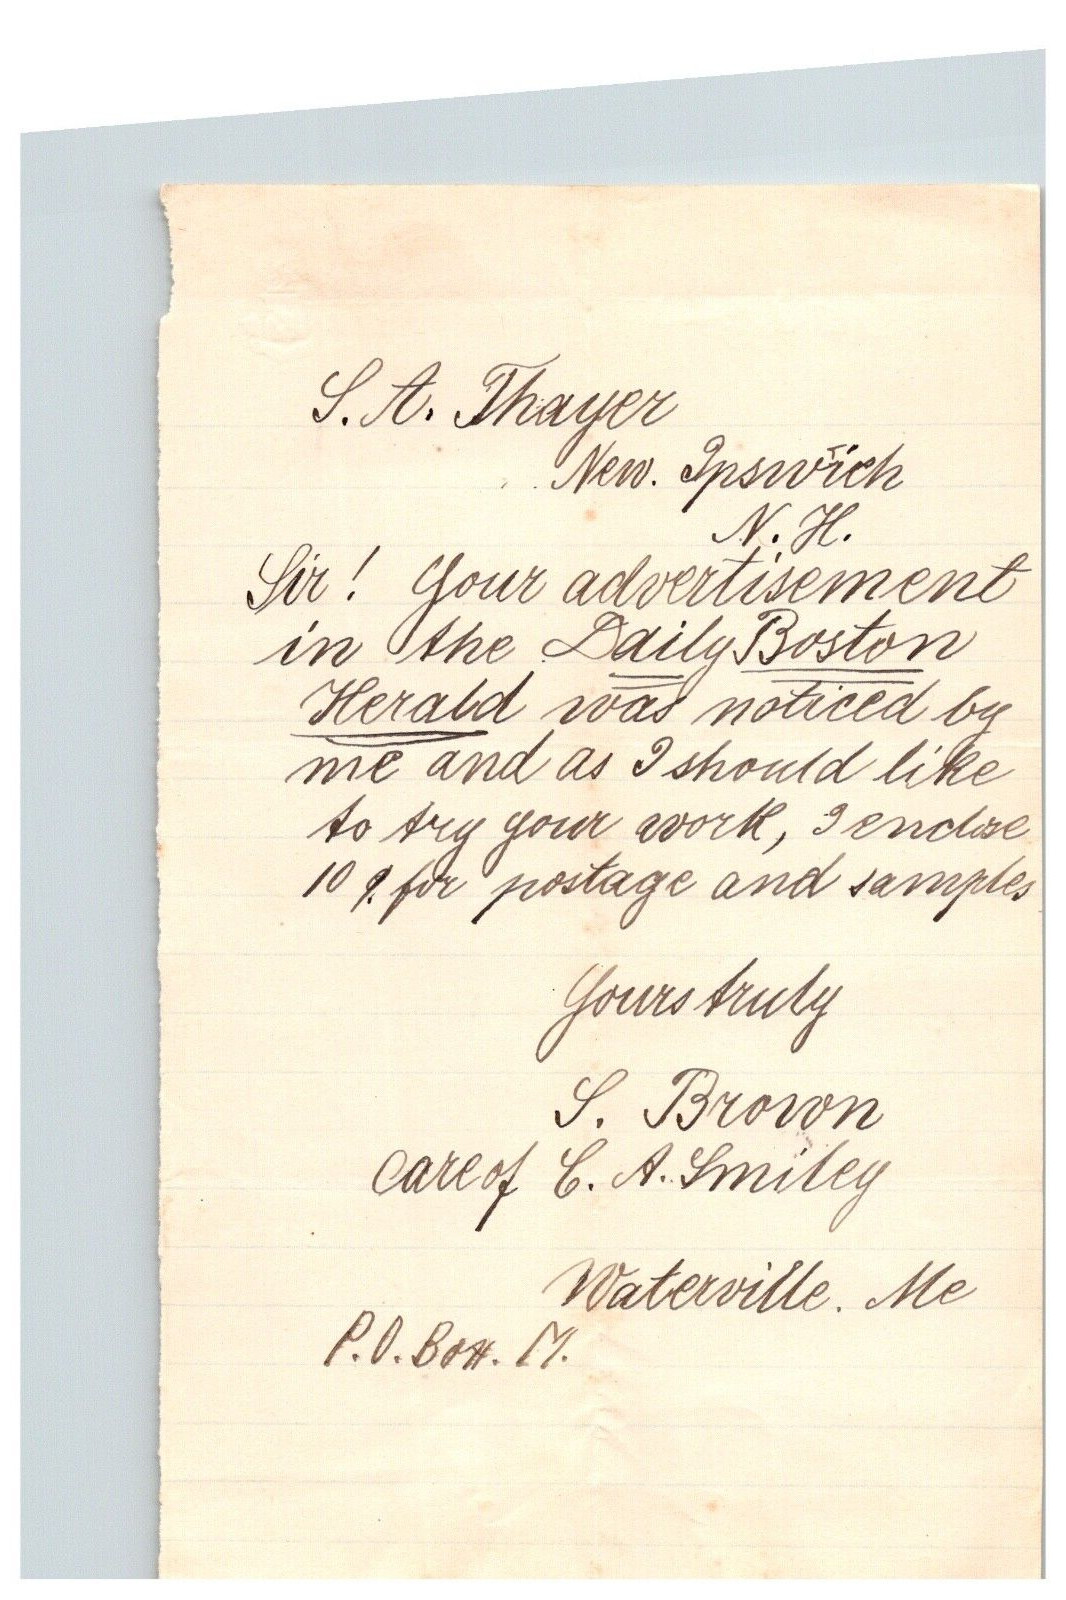 S. A. Thayer
New. Ipswich
N. H.
Sir! Your advertisement
in the Daily Boston
Herald was noticed by
me and as I should like
to try your work, I enclose
10 ¢ for postage and samples
Yours truly
S. Brown
care of C. A. Smiley
Waterville. Me
P.O. Box. M.